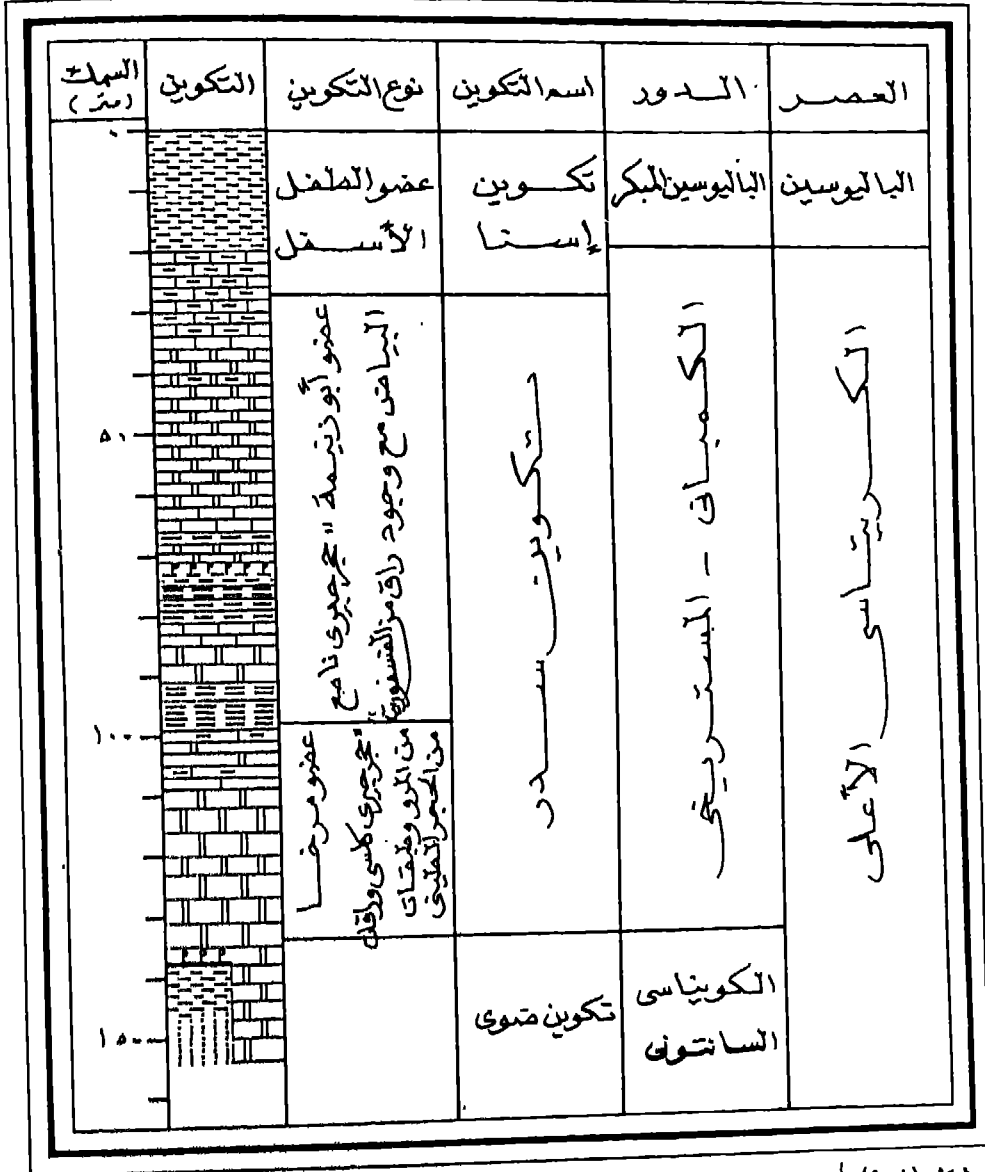 العصر
الدور
اسم التكوين
نوع التكوين
التكوين
السمك
(متر)
الباليوسين
الباليوسين المبكر
تكوين
إسنا
عضو الطفل
الأسفل
الكريتاسى الأعلى
الكمبانى - المستريخى
تكوين سدر
عضو أبو زنيمة "حجر جيرى ناصع
البياض مع وجود راق من الفسفوريت"
عضو مرخا
"حجر جيرى كلسى وراقات
من المرو وطبقات
من الحجر الطينى
الكونياسى
السانتونى
تكوين ضوى
٠
٥٠
١٠٠
١٥٠